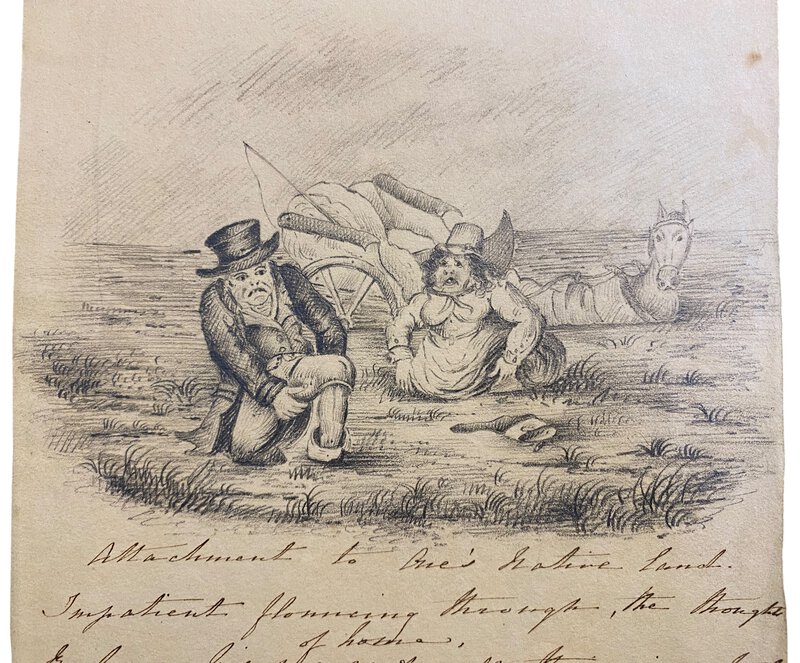 Attachment to One's Native land.
Impatient flouncing through, the thought
of home,